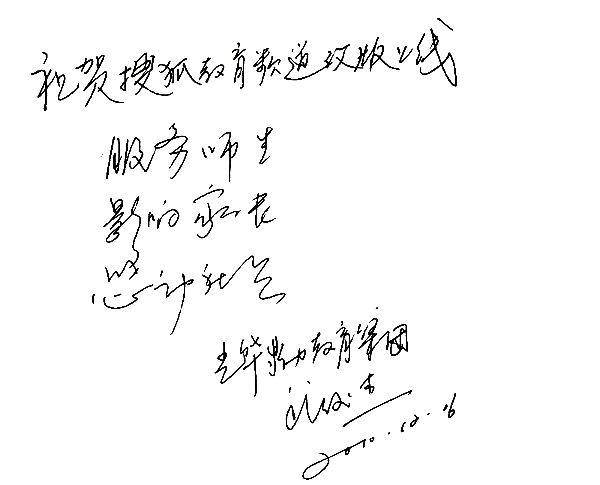 祝贺搜狐教育频道改版上线
服务师生
影响家长
感动社会
教育集团
2010.12.16